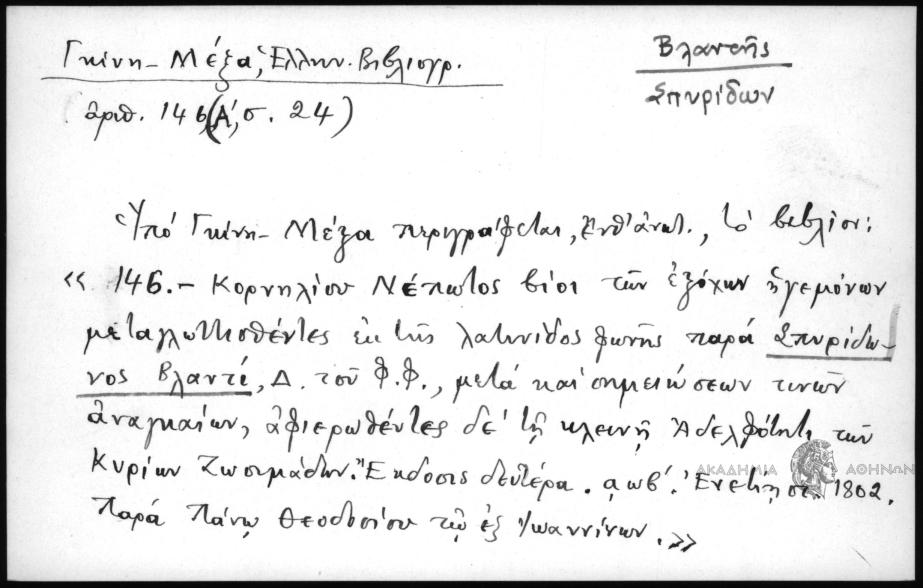 Γκίνη - Μέξα, Ἑλλην. Βιβλιογρ.
ἀριθ. 146 (Α', σ. 24)
Βλαντῆς
Σπυρίδων
Ὑπό Γκίνη - Μέξα περιγράφεται, ἔνθ' ἀνωτ., τό βιβλίον:
« 146. - Κορνηλίου Νέπωτος βίοι τῶν ἐξόχων ἡγεμόνων
μεταγλωττισθέντες ἐκ τῆς λατινίδος φωνῆς παρά Σπυρίδω-
νος Βλαντῆ, Δ. τοῦ Φ.Φ., μετά καί σημειώσεων τινῶν
ἀναγκαίων, ἀφιερωθέντες δέ τῇ κλεινῇ Ἀδελφότητι τῶν
Κυρίων Ζωσιμάδων. Ἔκδοσις δευτέρα. αωβ'. Ἐνετίῃσι. 1802.
Παρά Πάνῳ Θεοδοσίου τῷ ἐξ Ἰωαννίνων. »
ΑΚΑΔΗΜΙΑ ΑΘΗΝΩΝ